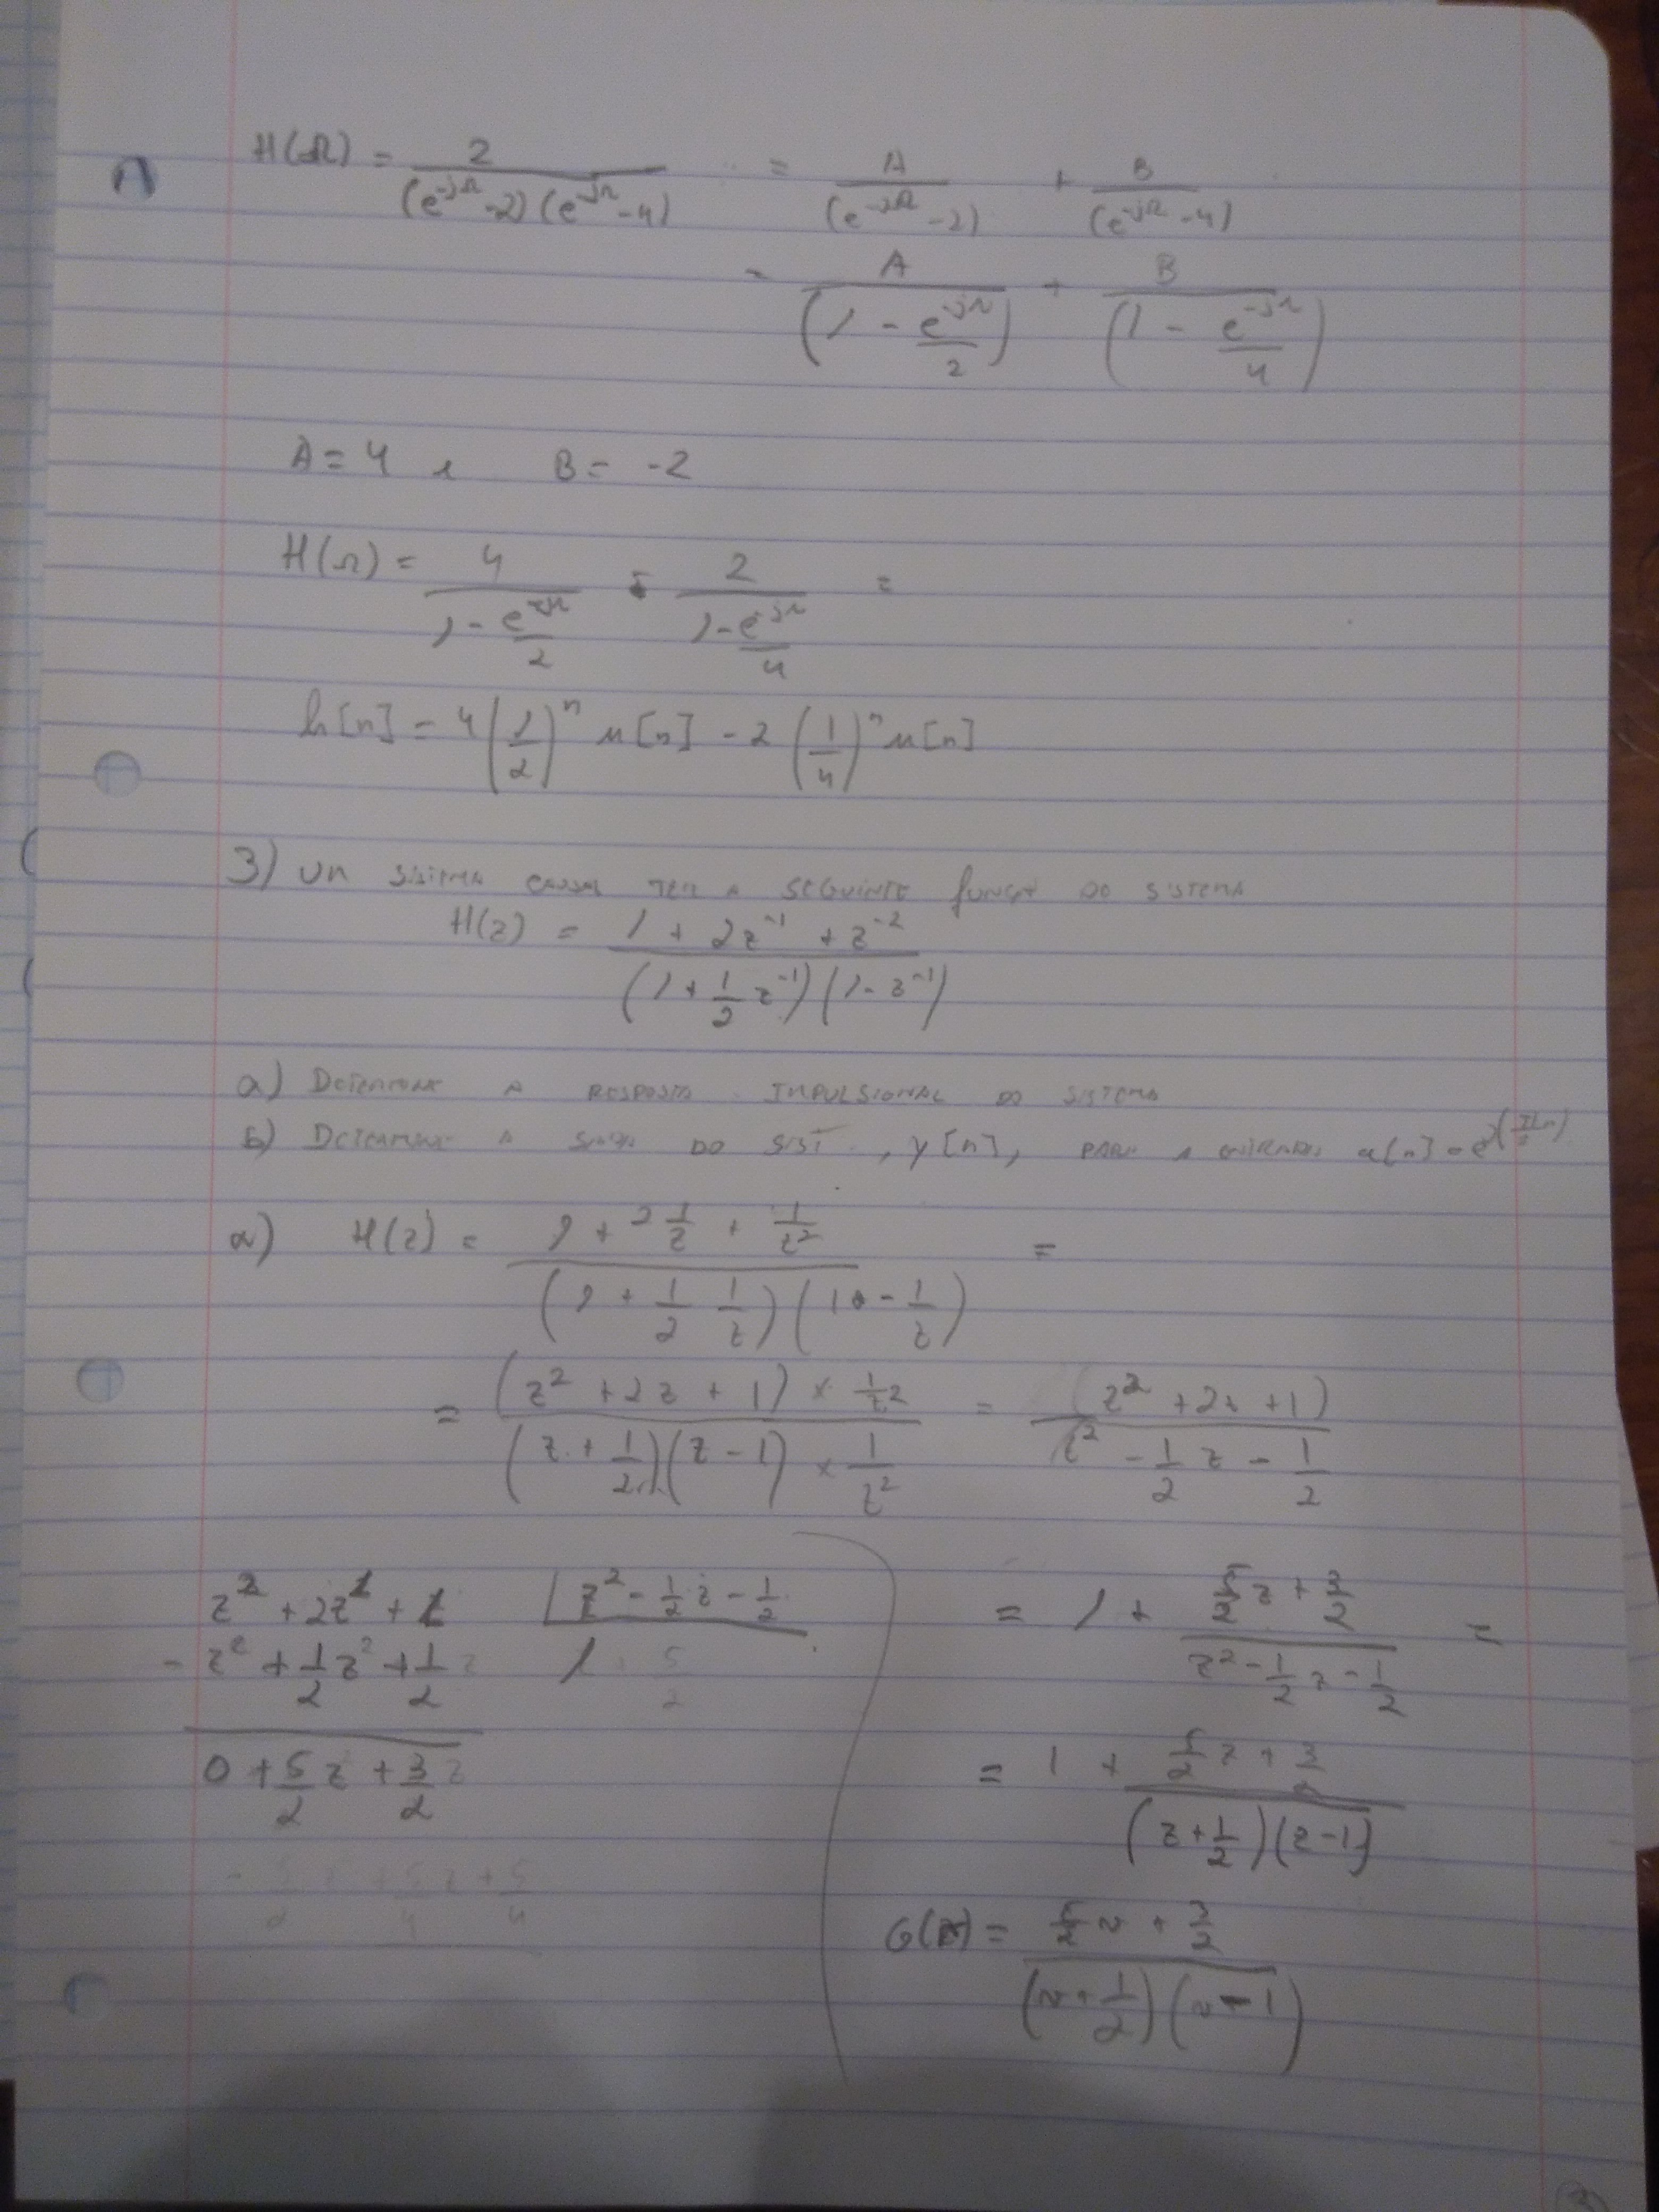 H(Ω) = 2 / ((e^-jΩ - 2)(e^-jΩ - 4)) = A / (e^-jΩ - 2) + B / (e^-jΩ - 4)
= A / (1 - e^-jΩ/2) + B / (1 - e^-jΩ/4)
A = 4 e B = -2
H(Ω) = 4 / (1 - e^-jΩ/2) - 2 / (1 - e^-jΩ/4) =
h[n] = 4 (1/2)^n u[n] - 2 (1/4)^n u[n]
3) UM SISTEMA CAUSAL TEM A SEGUINTE função DO SISTEMA
H(z) = (1 + 2z^-1 + z^-2) / ((1 + 1/2 z^-1)(1 - z^-1))
a) DETERMINE A RESPOSTA IMPULSIONAL DO SISTEMA
b) DETERMINE A SAÍDA DO SIST, y[n], PARA A ENTRADA
a) H(z) = (1 + 2 1/z + 1/z^2) / ((1 + 1/2 1/z)(1 - 1/z)) =
= ((z^2 + 2z + 1) × 1/z^2) / ((z + 1/2)(z - 1) × 1/z^2) = (z^2 + 2z + 1) / (z^2 - 1/2 z - 1/2)
z^2 + 2z + 1 | z^2 - 1/2 z - 1/2
- z^2 + 1/2 z + 1/2 1
0 + 5/2 z + 3/2
= 1 + (5/2 z + 3/2) / (z^2 - 1/2 z - 1/2) =
= 1 + (5/2 z + 3/2) / ((z + 1/2)(z - 1))
G(v) = (5/2 v + 3/2) / ((v + 1/2)(v - 1))